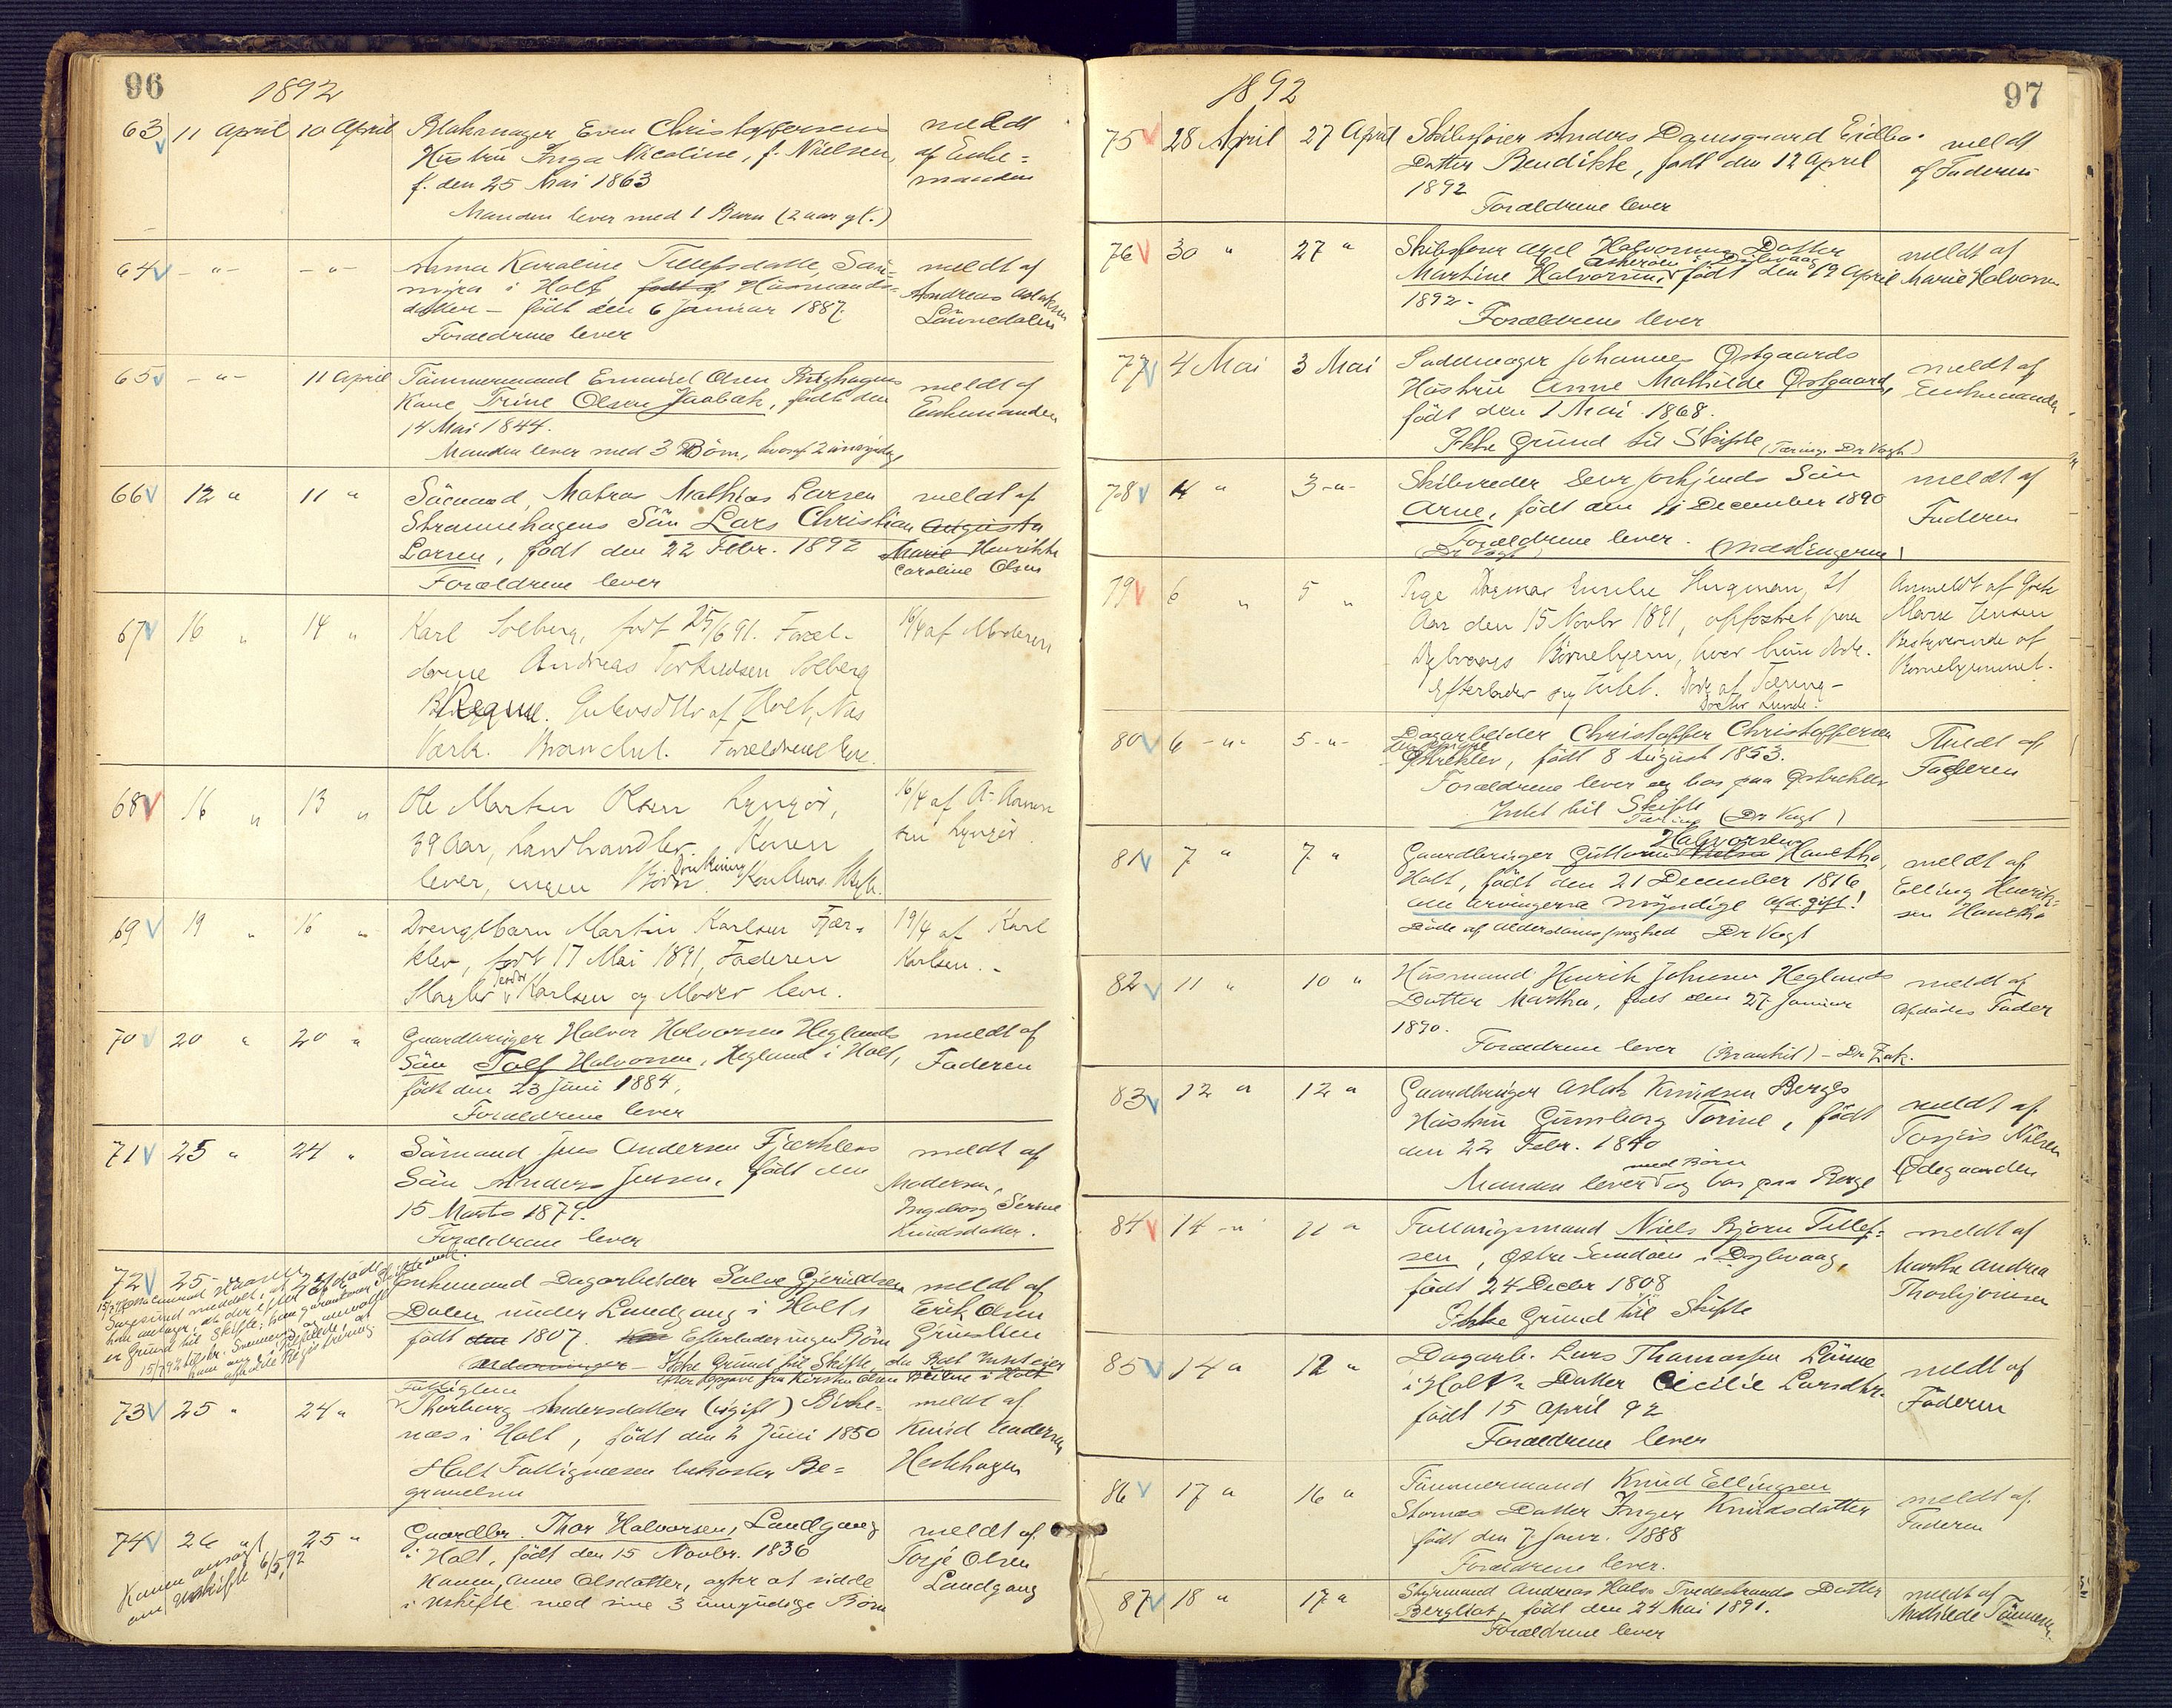 96
1892
63 11 April 10 April Blakmager Even Christophersens meldt
Hustru Inga Nicoline, f. Nielsen, af Enke-
f. den 25 Mai 1863 manden
Manden lever med 1 Barn (2 aar gl.)
64 -"- -"- Anna Karoline Tellefsdatter, San- meldt af
myra i Holt født af Husmands- Andreas Aslaksen
datter - født den 6 Januar 1887. Lønnedalen
Forældrene lever
65 -"- 11 April Tømmermand Emanuel Olsen Berghagens meldt af
Kone Trine Olsen Jaabæk, født den Enkemanden
14 Mai 1844.
Manden lever med 3 Børn, hvoraf 2 umyndige
66 12 " 11 " Sømand, Matros Mathias Larsen meldt af
Strammehagens Søn Lars Christian Augusta
Larsen, født den 22 Febr. 1892 Marie Henrikke
Forældrene lever Caroline Olsen
67 16 " 14 " Karl Solberg, født 25/6 91. Foræl- 16/4 af Moderen
drene Andreas Torkildsen Solberg
Regine. Gulovsdttr af Holt, Næs
Værk. Bronchit. Forældrene leve.
68 16 " 13 " Ole Martin Olsen Lyngør, 16/4 af A. Aanon
39 Aar, Landhandler. Konen sen Lyngør
lever, ingen Børn. Konkurs. Skifte.
69 19 " 16 " Drengebarn Martin Karlsen Fjær- 19/4 af Karl
klev, født 17 Mai 1891, Faderen Karlsen.
Karlsen og Moder leve.
70 20 " 20 " Gaardbruger Halvor Halvorsen Heglands meldt af
Søn Tolf Halvorsen, Hegland i Holt, Faderen
født den 23 Juni 1884,
Forældrene lever
71 25 " 24 " Sømand Jens Andersen Fjærklevs meldt af
Søn Anders Jensen, født den Moderen,
15 Marts 1879. Ingeborg Serine
Forældrene lever Knudsdatter.
72 25 Enkemand Dagarbeider Salve Gjeruldsen meldt af
Dalen under Landgang i Holt, Erik Olsen
født den 1807. Efterlader ingen Børn
Ikke Grund til Skifte, da Boet Intet eier
73 25 " 24 " Fattiglem
Thorborg Andersdatter (ugift) Birke- meldt af
næs i Holt, født den 2 Juni 1850 Knud Andersen
Holt Fattigvæsen bekoster Be- Heshhagen
gravelsen
74 26 " 25 " Gaardbr. Thor Halvorsen, Landgang meldt af
i Holt, født den 15 Novbr. 1836 Torje Olsen
Konen, Anne Olsdatter, agter at sidde Landgang
i Uskifte med sine 3 umyndige Børn
Konen ansøgt
om Uskifte 6/5 92
97
1892
75 28 April 27 April Skibsfører Anders Damsgaard Eidbo. meldt
Datter Bendikte, født den 12 April af Faderen
1892
Forældrene lever
76 30 " 27 " Skibsfører Axel Halvorsens Datter meldt af
Martine Halvorsen, født den 19 April Marie Halvorsen
1892.
Forældrene lever
77 4 Mai 3 Mai Sadelmager Johannes Østgaards meldt af
Hustru Anne Mathilde Østgaard, Enkemanden
født den 1 Mai 1868.
Ikke Grund til Skifte (Tæring. Dr Vogt)
78 4 " 3 -"- Skibsreder Søn meldt af
Arne, født den 11 December 1890 Faderen
Forældrene lever. (Mæslingerne)
(Dr Vogt)
79 6 " 5 " Pige Dagmar Emilie 21 Anmeldt af Grete
Aar den 15 Novbr 1891, opfostret paa Marie Jensen
Dybvaags Børnehjem, hvor hun døde. Bestyrerinde af
Efterlader sig Intet. Død af Tæring - Børnehjemmet.
Doctor Lunde.
80 6 -"- 5 -"- Dagarbeider Christoffer Christoffersen Meldt af
den yngre
Østreklev, født 8 August 1853. Faderen
Forældrene lever og bor paa Østreklev
Intet til Skifte
Tæring (Dr Vogt)
81 7 " 7 " Halvorsen
Gaardbruger Guttorm Hanetho, meldt af
Holt, født den 21 December 1816, Elling Henrik-
alle Arvingerne Myndige afd. gift! sen Hanetho
Døde af Alderdomssvaghed Dr Vogt
82 11 " 10 " Husmand Henrik Johnsen Heglands meldt af
Datter Martha, født den 27 Januar Afdødes Fader
1890.
Forældrene lever (Bronkit) - Dr
83 12 " 12 " Gaardbruger Aslak Knudsen Berges meldt af
Hustru Gunnborg Torine, født Torjus Nilsen
den 22 Febr. 1840 Ødegaarden
med Børn
Manden lever og bor paa Berge
84 14 -" 11 " Fattigmand Niels Bjørn Tellef- meldt af
sen, Østre Sandøen i Dybvaag, Marthe Andrea
født 24 Decbr 1808 Thorbjørnsen
Ikke Grund til Skifte
85 14 " 12 " Dagarb. Lars Thomassen Lønne meldt af
i Holt's Datter Cicilie Larsdtr. Faderen
født 15 April 92
Forældrene lever
86 17 " 16 " Tømmermand Knud Ellingsen meldt af
Datter Inger Knudsdatter Faderen
født den 7 Janr. 1888
Forældrene lever.
87 18 " 17 " Styrmand Andreas Hals's Tvedestrands Datter meldt af
Bergliot, født den 24 Mai 1891. Mathilde Tønnesen.
Forældrene lever